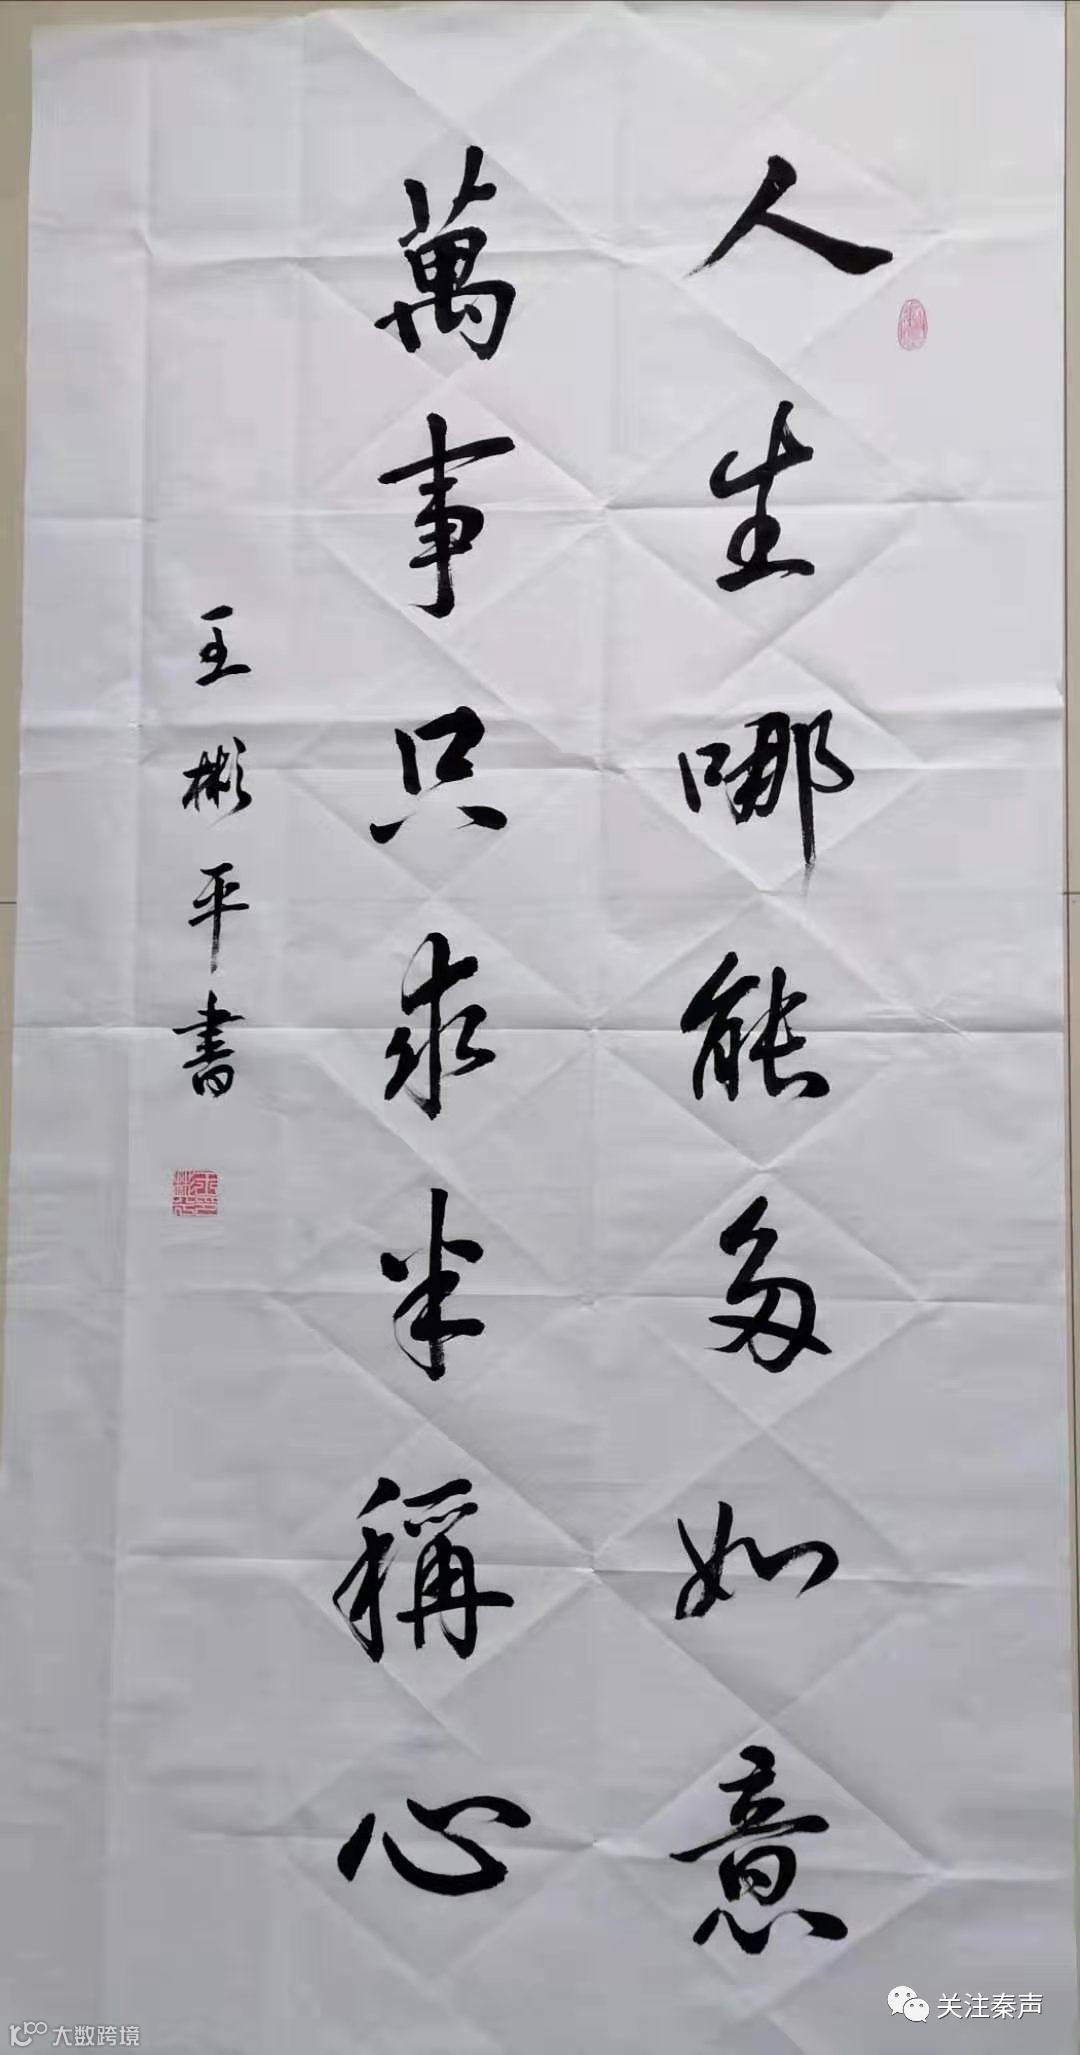 人生哪能多如意
萬事只求半稱心
王彬平書
关注秦声
大数跨境